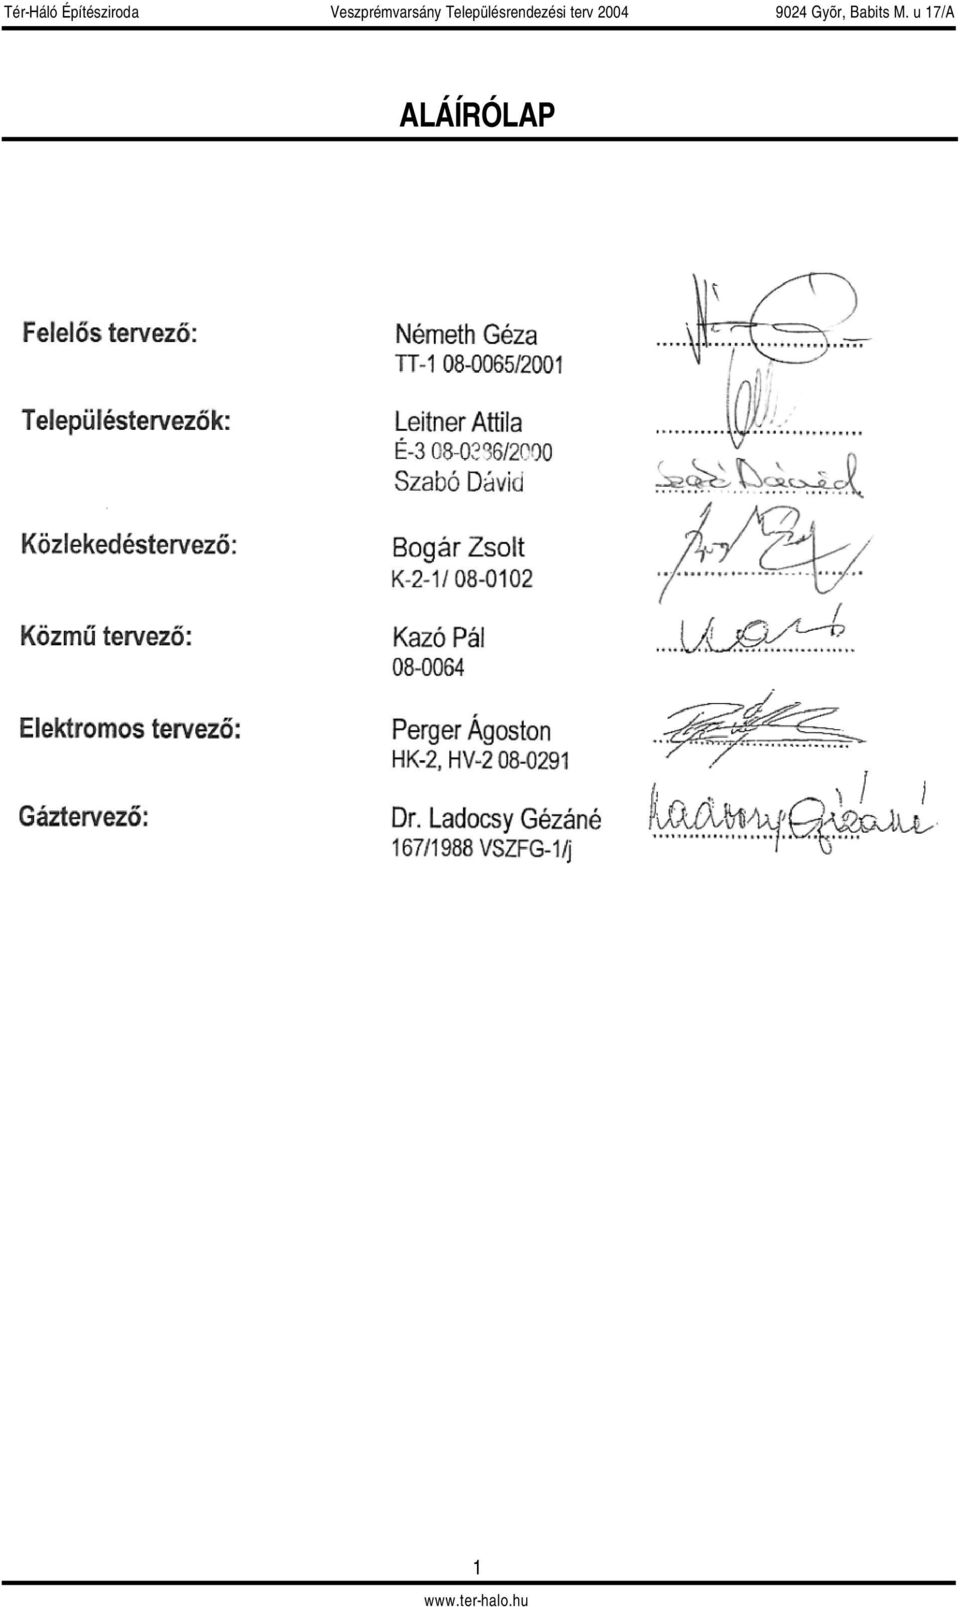 Tér-Háló Építésziroda Veszprémvarsány Településrendezési terv 2004 9024 Győr, Babits M. u 17/A
ALÁÍRÓLAP
Felelős tervező: Németh Géza
TT-1 08-0065/2001
Településtervezők: Leitner Attila
É-3
Szabó Dávid Szabó Dávid
Közlekedéstervező: Bogár Zsolt
K-2-1/ 08-0102
Közmű tervező: Kazó Pál
08-0064
Elektromos tervező: Perger Ágoston
HK-2, HV-2 08-0291
Gáztervező: Dr. Ladocsy Gézáné Ladocsy Gézáné
167/1988 VSZFG-1/j
1
www.ter-halo.hu